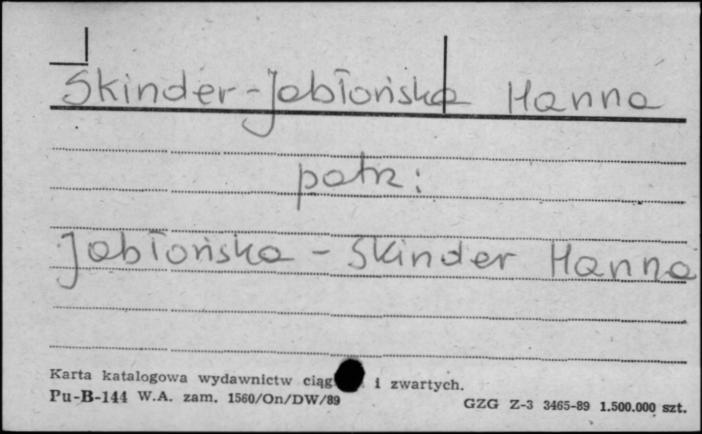 Skinder-Jabłońska Hanna
patrz:
Jabłońska - Skinder Hanna
Karta katalogowa wydawnictw ciąg i zwartych.
Pu-B-144 W.A. zam. 1560/On/DW/89
GZG Z-3 3465-89 1.500.000 szt.